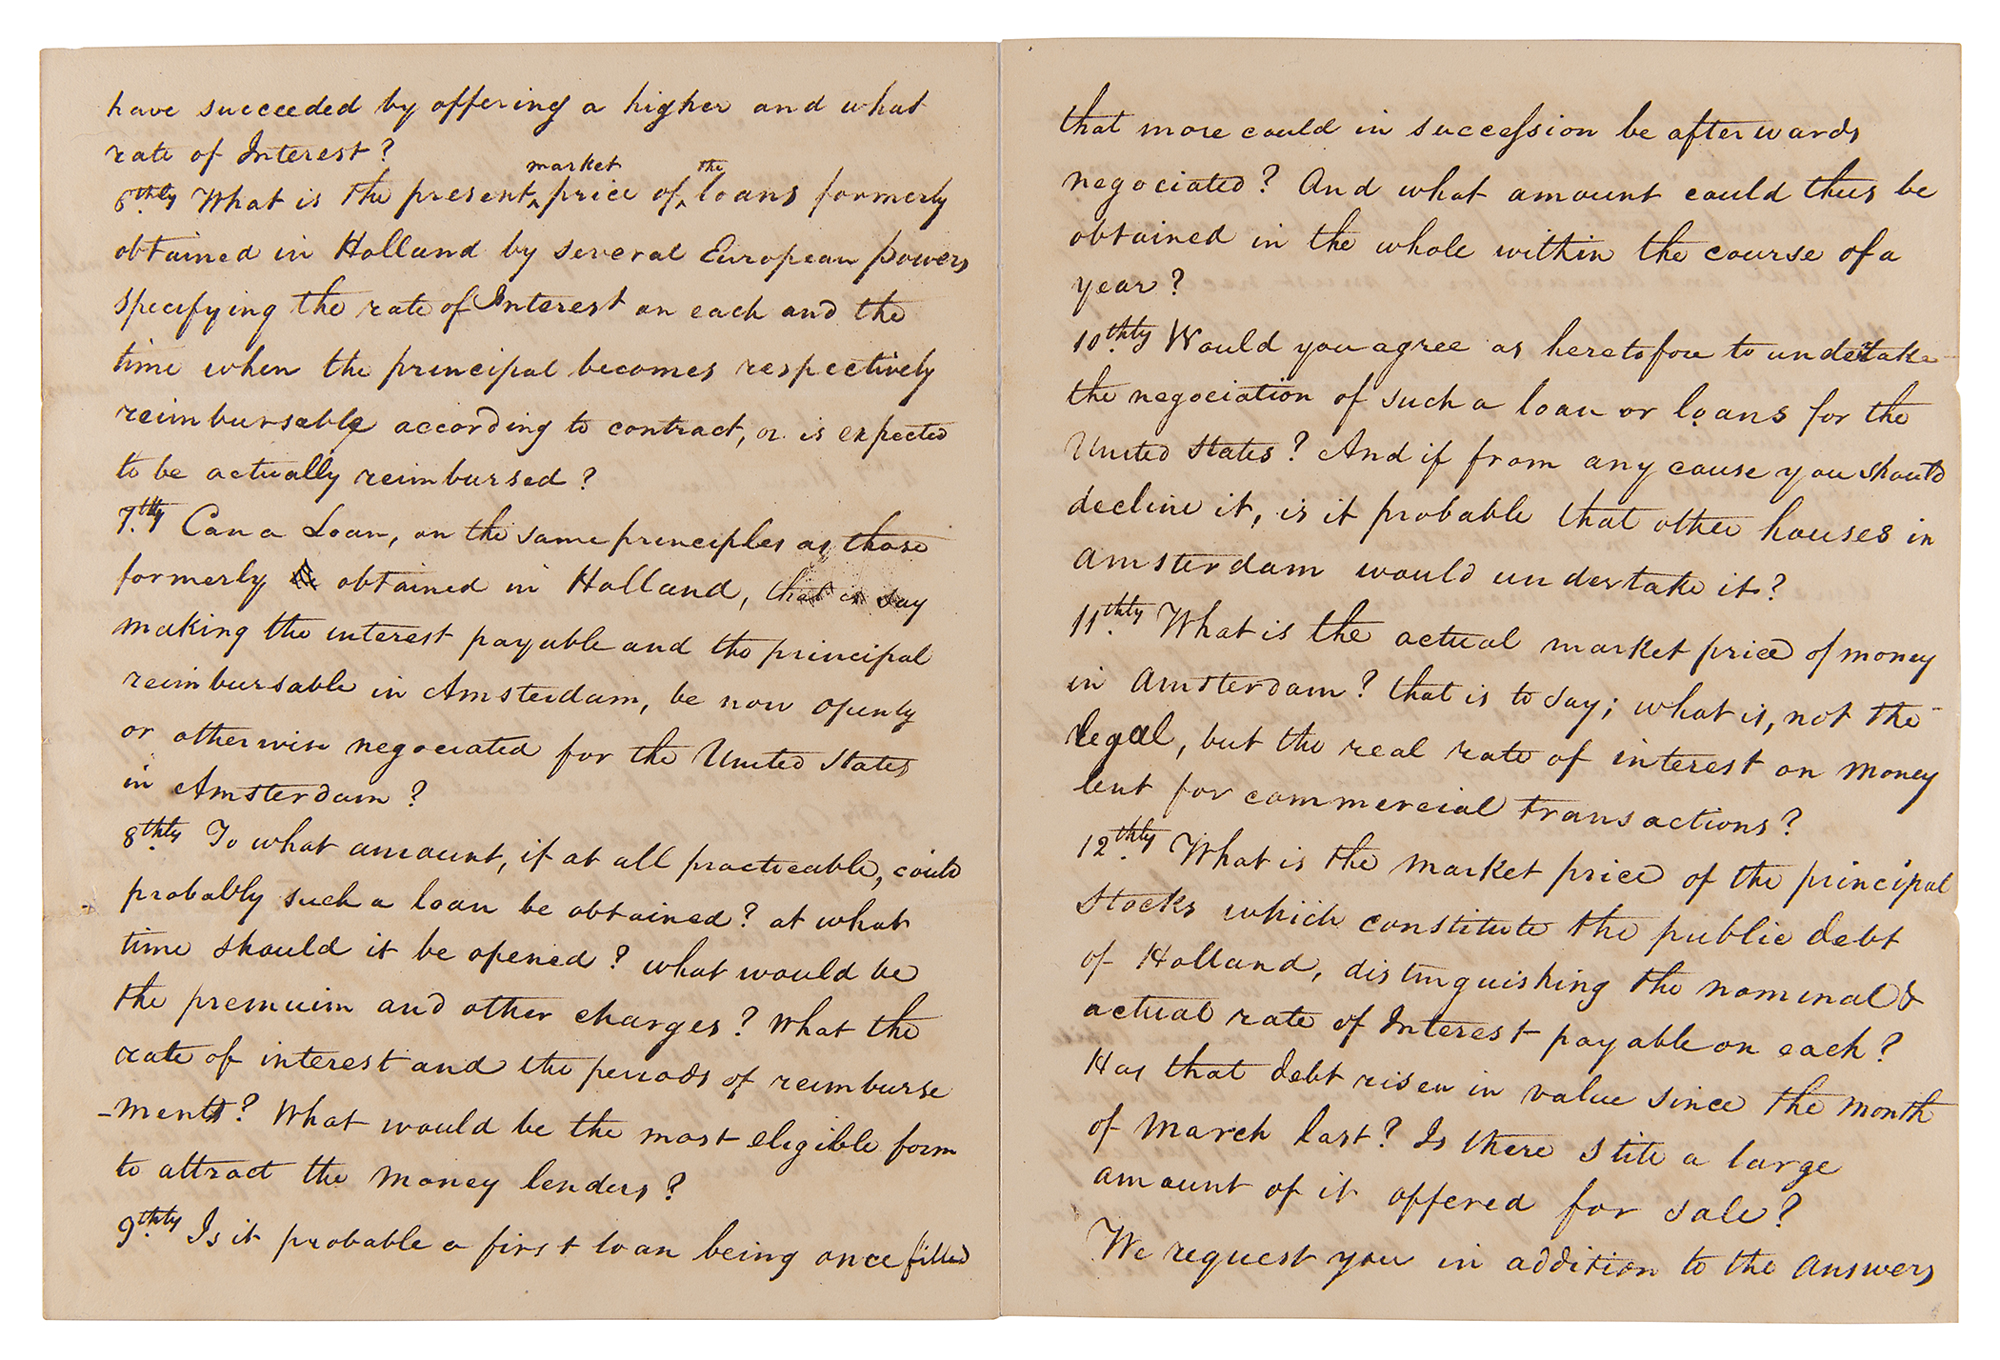 have succeeded by offering a higher and what
rate of Interest?
6thly What is the present market price of the loans formerly
obtained in Holland by several European powers
specifying the rate of Interest on each and the
time when the principal becomes respectively
reimbursable according to contract, or is expected
to be actually reimbursed?
7thly Can a Loan, on the same principles as those
formerly obtained in Holland, that is say
making the interest payable and the principal
reimbursable in Amsterdam, be now openly
or otherwise negociated for the United States
in Amsterdam?
8thly To what amount, if at all practicable, could
probably such a loan be obtained? at what
time should it be opened? what would be
the premuim and other charges? What the
rate of interest and the periods of reimburse
-ments? What would be the most eligible form
to attract the money lenders?
9thly Is it probable a first loan being once filled
that more could in succession be afterwards
negociated? And what amount could thus be
obtained in the whole within the course of a
year?
10thly Would you agree as heretofore to undertake
the negociation of such a loan or loans for the
United States? And if from any cause you should
decline it, is it probable that other houses in
Amsterdam would undertake it?
11thly What is the actual market price of money
in Amsterdam? that is to say; what is, not the
legal, but the real rate of interest on money
lent for commercial transactions?
12thly What is the market price of the principal
stocks which constitute the public debt
of Holland, distinguishing the nominal &
actual rate of Interest payable on each?
Has that debt risen in value since the month
of March last? Is there still a large
amount of it offered for sale?
We request you in addition to the answers